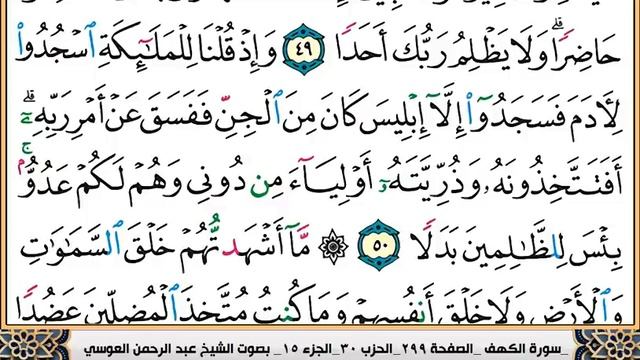 حَاضِرًا ۗ وَلَا يَظْلِمُ رَبُّكَ أَحَدًا ٤٩ وَإِذْ قُلْنَا لِلْمَلَـٰٓئِكَةِ ٱسْجُدُوا۟
لِـَٔادَمَ فَسَجَدُوٓا۟ إِلَّآ إِبْلِيسَ كَانَ مِنَ ٱلْجِنِّ فَفَسَقَ عَنْ أَمْرِ رَبِّهِۦٓ ۗ
أَفَتَتَّخِذُونَهُۥ وَذُرِّيَّتَهُۥٓ أَوْلِيَآءَ مِن دُونِى وَهُمْ لَكُمْ عَدُوٌّۢ ۚ
بِئْسَ لِلظَّـٰلِمِينَ بَدَلًا ٥٠ ۞ مَّآ أَشْهَدتُّهُمْ خَلْقَ ٱلسَّمَـٰوَٰتِ
وَٱلْأَرْضِ وَلَا خَلْقَ أَنفُسِهِمْ وَمَا كُنتُ مُتَّخِذَ ٱلْمُضِلِّينَ عَضُدًا
سورة الكهف _الصفحة ٢٩٩_الحزب ٣٠_الجزء ١٥_ بصوت الشيخ عبد الرحمن العوسي